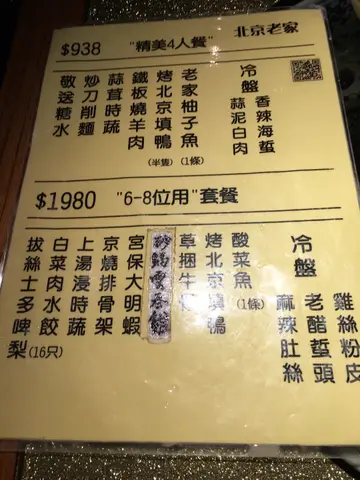 北京老家
$938 "精美4人餐"
冷盤
香辣海蜇
蒜泥白肉
老家柚子魚(1條)
烤北京填鴨(半隻)
鐵板燒羊肉
蒜茸時蔬
炒刀削麵
敬送糖水
$1980 "6-8位用"套餐
冷盤
雞絲粉皮
老醋蜇頭
麻辣肚絲
酸菜魚(1條)
烤北京填鴨
草捆牛
宮保大明蝦
京燒排骨架
上湯浸時蔬
白菜水餃(16只)
拔絲士多啤梨